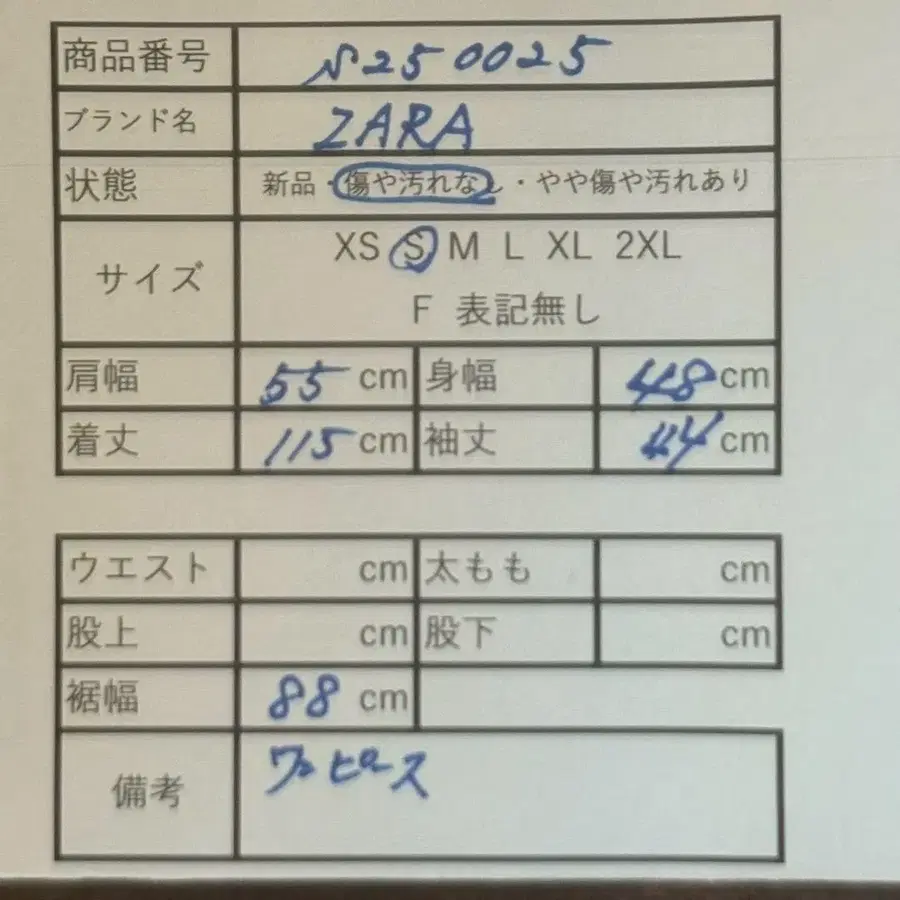 商品番号 N250025
ブランド名 ZARA
状態 新品・傷や汚れなし・やや傷や汚れあり
サイズ XS S M L XL 2XL
F 表記無し
肩幅 55 cm 身幅 48 cm
着丈 115 cm 袖丈 44 cm
ウエスト cm 太もも cm
股上 cm 股下 cm
裾幅 88 cm
備考 ワンピース